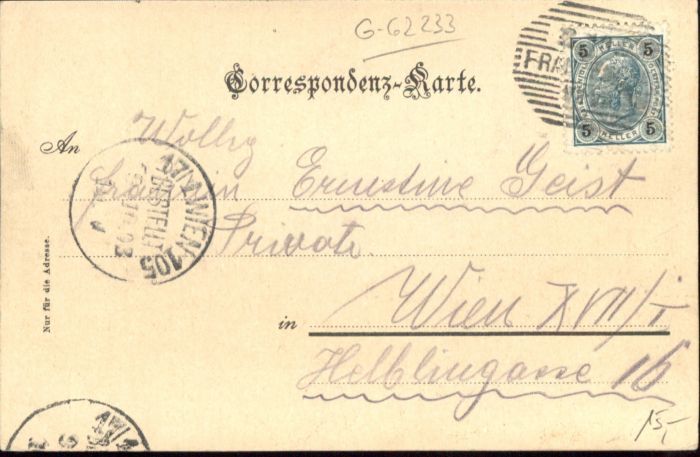 G-62233
Correspondenz-Karte.
5 HELLER 5
5 HELLER 5
FRA
An
Fräulein Ernestine Geist
17/1 WIEN 105
BESTELLT
Private
Nur für die Adresse.
in Wien XVII/1
Helblingasse 16
15,-